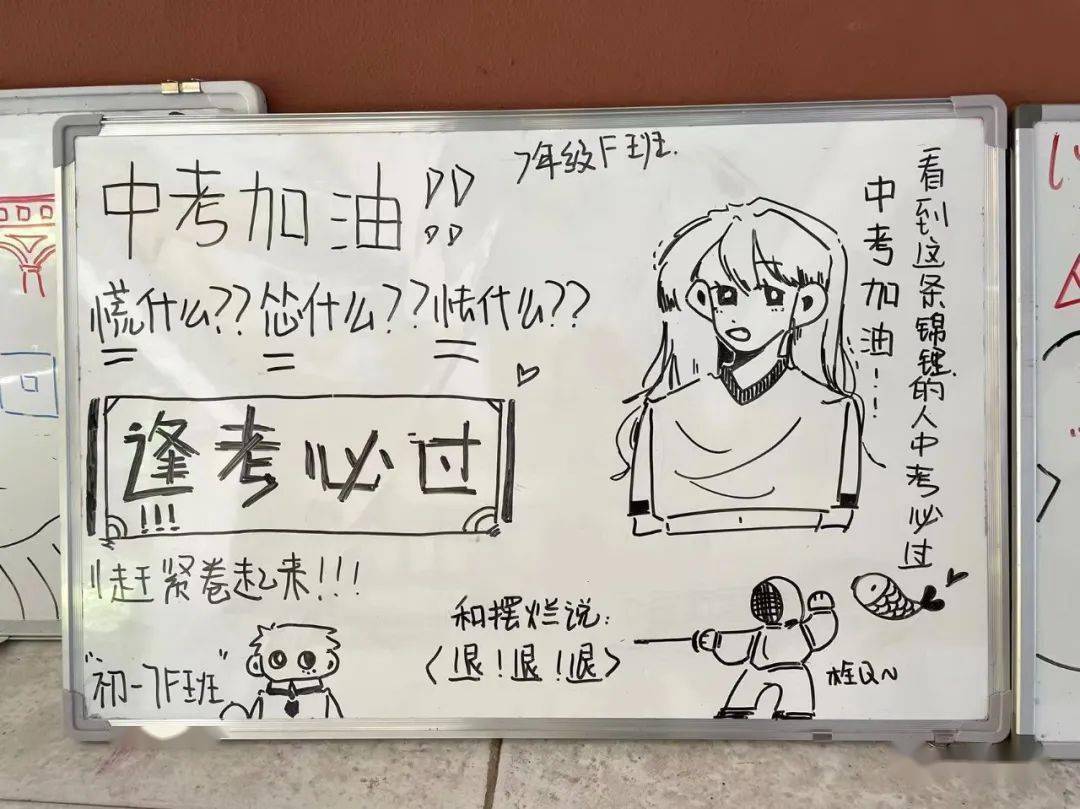 7年级F班.
中考加油!!
慌什么??怂什么??怯什么??
逢考必过
!!!
赶紧卷起来!!!
"初一7F班"
和摆烂说:
<退!退!退>
中考加油!!
看到这条锦鲤的人中考必过
栓QN